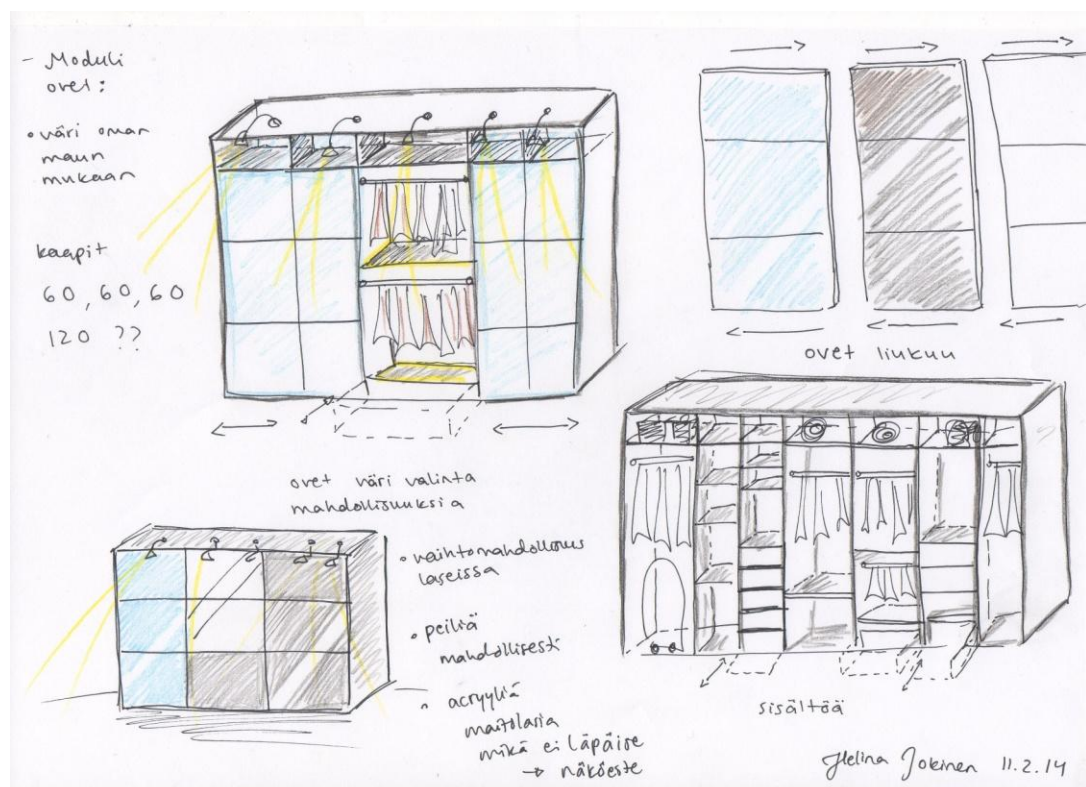 - Moduli
ovet:
• väri oman
maun
mukaan
kaapit
60, 60, 60
120 ??
ovet liukuu
ovet väri valinta
mahdollisuuksia
• vaihtomahdollisuus
laseissa
• peiliä
mahdollisesti
• acryyliä
maitolasia
mikä ei läpäise
→ näköeste
sisältöä
Helina Jokinen 11.2.14